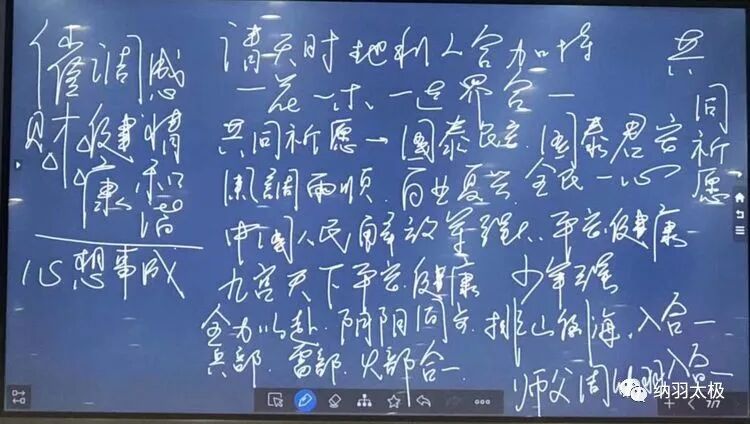 催调感
财健情
康和
谐
心想事成
请天时地利人合加持
一花一木一世界合一
共同祈愿→国泰民安.国泰君安
风調雨順.百业复兴.全民一心
中国人民解放军强大.平安健康
九宫天下平安健康 少年强
全力以赴.阴阳同方.排山倒海.入合一
兵部.雷部.火部合一
师父周 羽入合一
共
同
祈
愿
7/7
纳羽太极